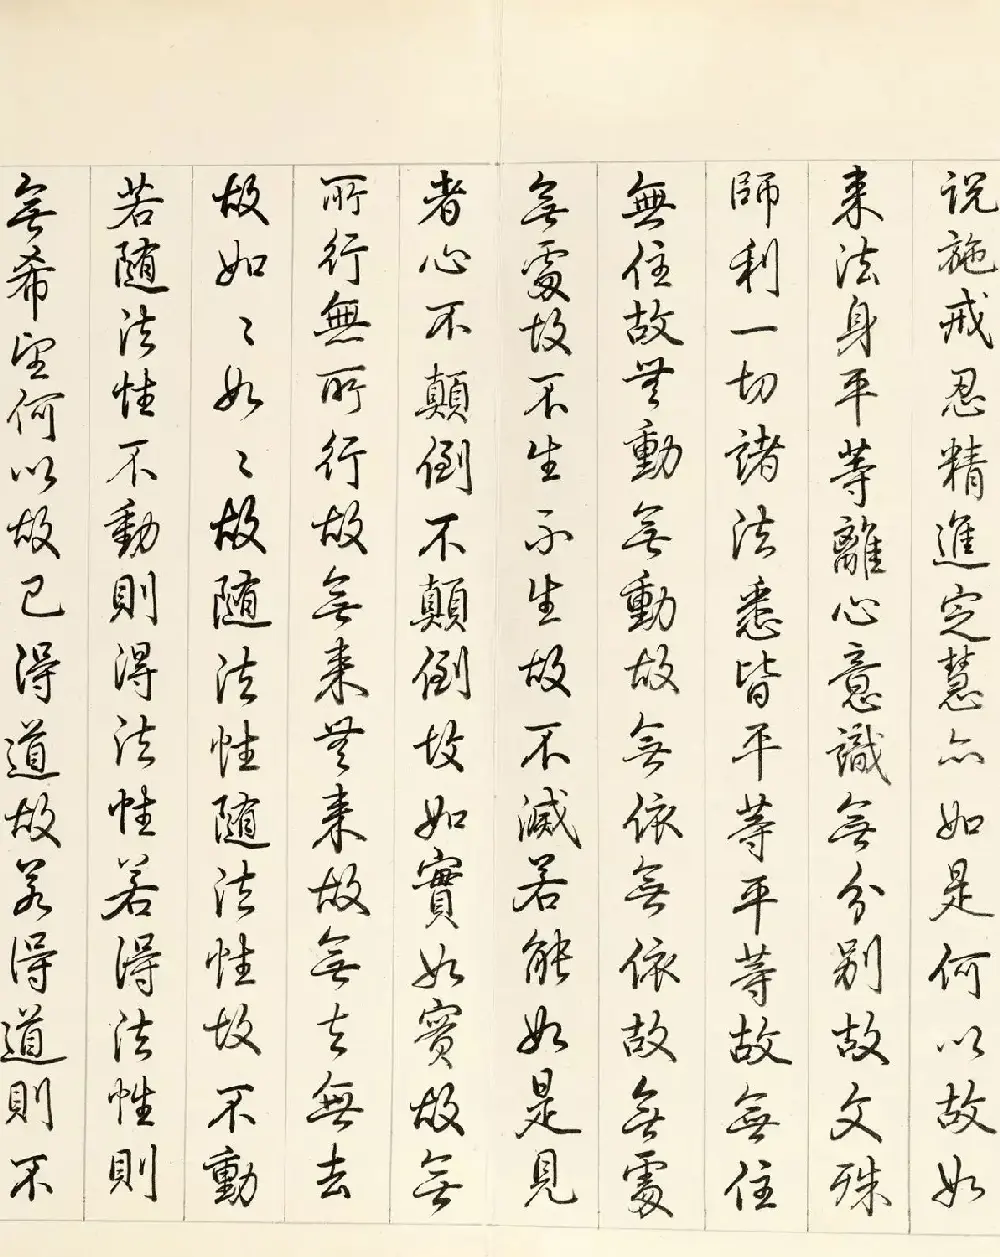 说施戒忍精進定慧亦如是何以故如
来法身平等離心意識無分别故文殊
師利一切諸法悉皆平等平等故無住
無住故無動無動故無依無依故無處
無處故不生不生故不滅若能如是見
者心不顛倒不顛倒故如實如實故無
所行無所行故無来無来故無去無去
故如〻如〻故随法性随法性故不動
若随法性不動則得法性若得法性則
無希望何以故已得道故若得道則不